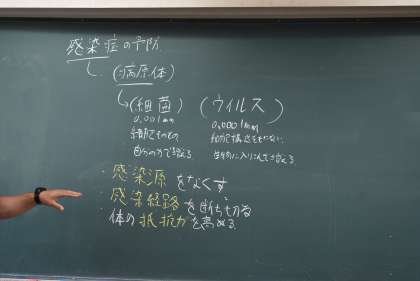 感染症の予防
(病原体)
(細菌) (ウィルス)
0.001mm 0.0001mm
細胞でできている
自分の力で増える 生物に入りこんで増える
・感染源をなくす
・感染経路を断ち切る
・体の抵抗力を高める